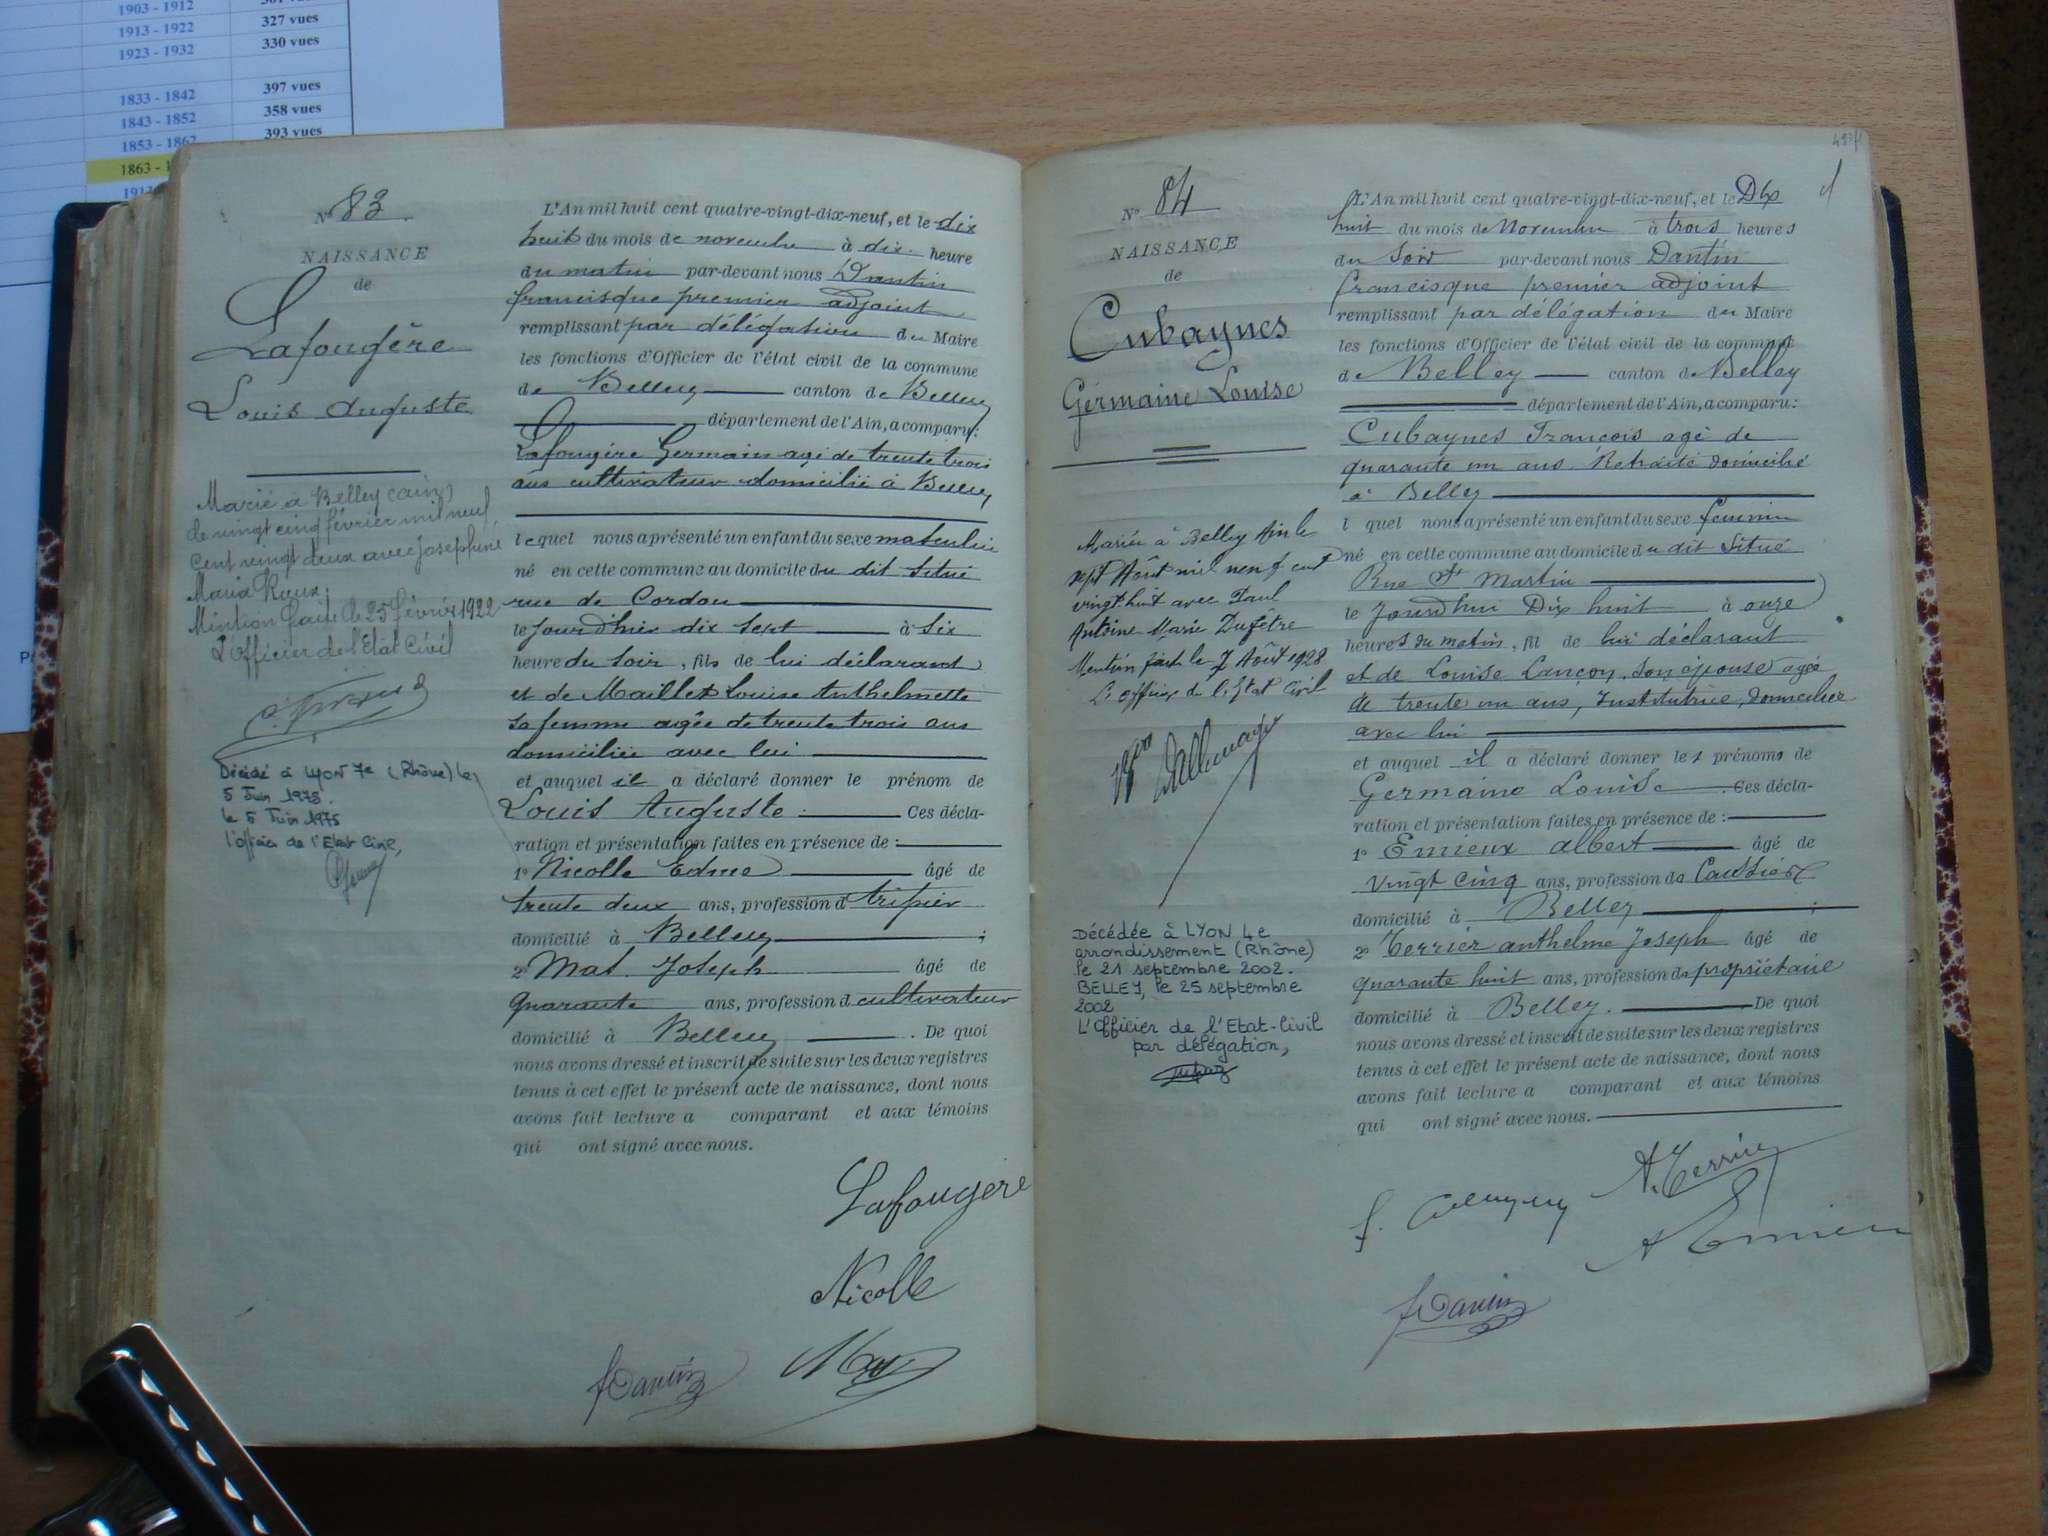 1903 - 1912
1913 - 1922 327 vues
1923 - 1932 330 vues
1833 - 1842 397 vues
1843 - 1852 358 vues
1853 - 1862 393 vues
1863 - 1
N° 83
NAISSANCE
de
Lafougère
Louis Auguste
Marié à Belley (Ain)
le vingt cinq février mil neuf
cent vingt deux avec Joséphine
Maria Roux
Mention faite le 25 février 1922
L'officier de l'Etat Civil
Décédé à LYON 7e (Rhône) le
5 Juin 1975.
le 5 Juin 1975
l'officier de l'Etat Civil,
L'An mil huit cent quatre-vingt-dix-neuf, et le dix
huit du mois de novembre à dix heure
du matin par-devant nous Dantin
francisque premier adjoint
remplissant par délégation du Maire
les fonctions d'Officier de l'état civil de la commune
de Belley canton de Belley
département de l'Ain, a comparu:
Lafougère Germain agé de trente trois
ans cultivateur domicilié à Belley
lequel nous a présenté un enfant du sexe masculin
né en cette commune au domicile du dit situé
rue de Cordon
le jourdhier dix sept à six
heure du soir, fils de lui déclarant
et de Maillet Louise Anthelmette
sa femme agée de trente trois ans
domiciliée avec lui
et auquel il a déclaré donner le prénom de
Louis Auguste. Ces décla-
ration et présentation faites en présence de :
1° Nicolle Edme âgé de
trente deux ans, profession d tripier
domicilié à Belley ;
2° Mat Joseph âgé de
quarante ans, profession d cultivateur
domicilié à Belley . De quoi
nous avons dressé et inscrit de suite sur les deux registres
tenus à cet effet le présent acte de naissance, dont nous
avons fait lecture a comparant et aux témoins
qui ont signé avec nous.
Lafougere
Nicolle
Mat
f Dantin
N° 84
NAISSANCE
de
Cubaynes
Germaine Louise
Mariée à Belley Ain le
sept Août mil neuf cent
vingt huit avec Paul
Antoine Marie Dufêtre
Mention faite le 7 Août 1928
L'officier de l'Etat Civil
Décédée à LYON 4e
arrondissement (Rhône)
le 21 septembre 2002.
BELLEY, le 25 septembre
2002
L'Officier de l'Etat-Civil
par délégation,
L'An mil huit cent quatre-vingt-dix-neuf, et le Dix
huit du mois de Novembre à trois heures
du Soir par-devant nous Dantin
francisque premier adjoint
remplissant par délégation du Maire
les fonctions d'Officier de l'état civil de la commune
de Belley canton de Belley
département de l'Ain, a comparu:
Cubaynes François agé de
quarante un ans Retraité domicilié
à Belley
l quel nous a présenté un enfant du sexe feminin
né en cette commune au domicile du dit situé
Rue St Martin
le jourdhui Dix huit à onze
heures du matin, fil de lui déclarant
et de Louise Lançon, son épouse agée
de trente un ans, Institutrice, domiciliée
avec lui
et auquel il a déclaré donner les prénoms de
Germaine Louise . Ces décla-
ration et présentation faites en présence de :
1° Emieux Albert âgé de
vingt cinq ans, profession de
domicilié à Belley ;
2° Terrier anthelme Joseph âgé de
quarante huit ans, profession de propriétaire
domicilié à Belley. De quoi
nous avons dressé et inscrit de suite sur les deux registres
tenus à cet effet le présent acte de naissance, dont nous
avons fait lecture a comparant et aux témoins
qui ont signé avec nous.
A. Terrier
f. Cubaynes
A Emieux
f Dantin